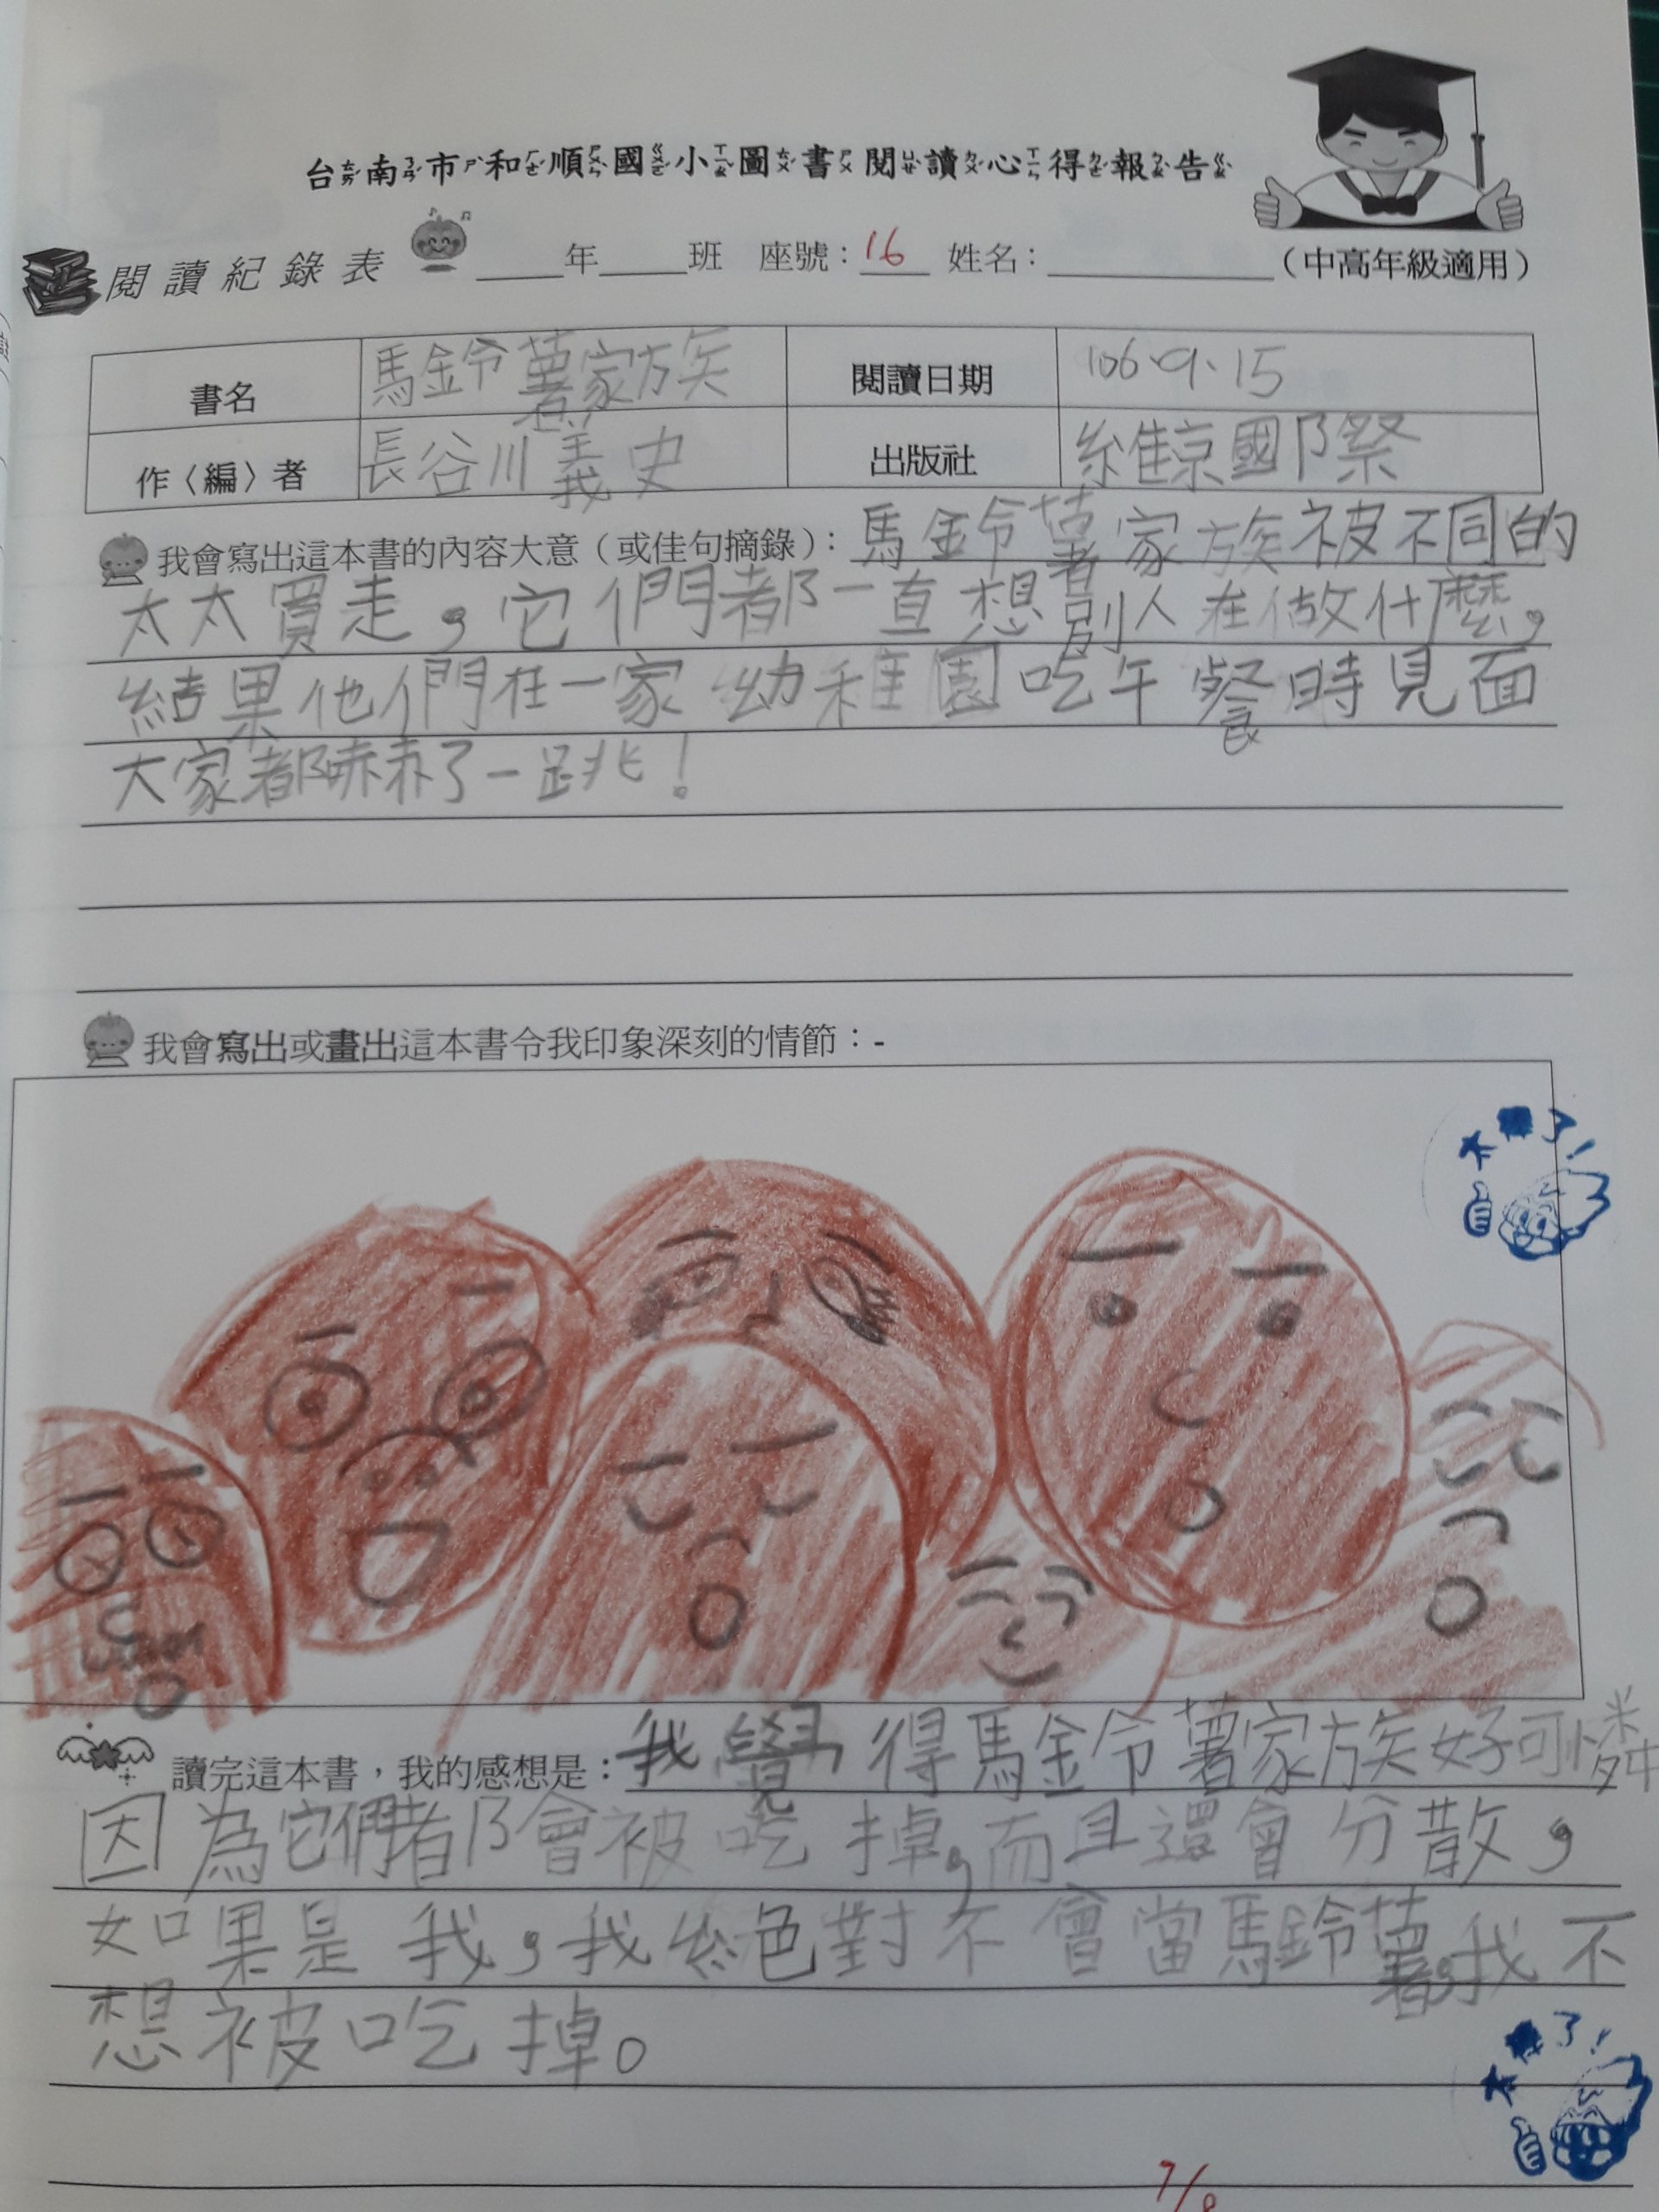 台南市和順國小圖書閱讀心得報告
閱讀紀錄表 ____年____班 座號：16 姓名：________（中高年級適用）
書名 馬鈴薯家族 閱讀日期 106.9.15
作〈編〉者 長谷川義史 出版社 維京國際
我會寫出這本書的內容大意（或佳句摘錄）：馬鈴薯家族被不同的
太太買走，它們都一直想別人在做什麼，
結果他們在一家幼稚園吃午餐時見面
大家都嚇了一跳！
我會寫出或畫出這本書令我印象深刻的情節：-
太棒了！
讀完這本書，我的感想是：我覺得馬鈴薯家族好可憐
因為它們都會被吃掉，而且還會分散，
如果是我，我絕對不會當馬鈴薯，我不
想被吃掉。
太棒了！